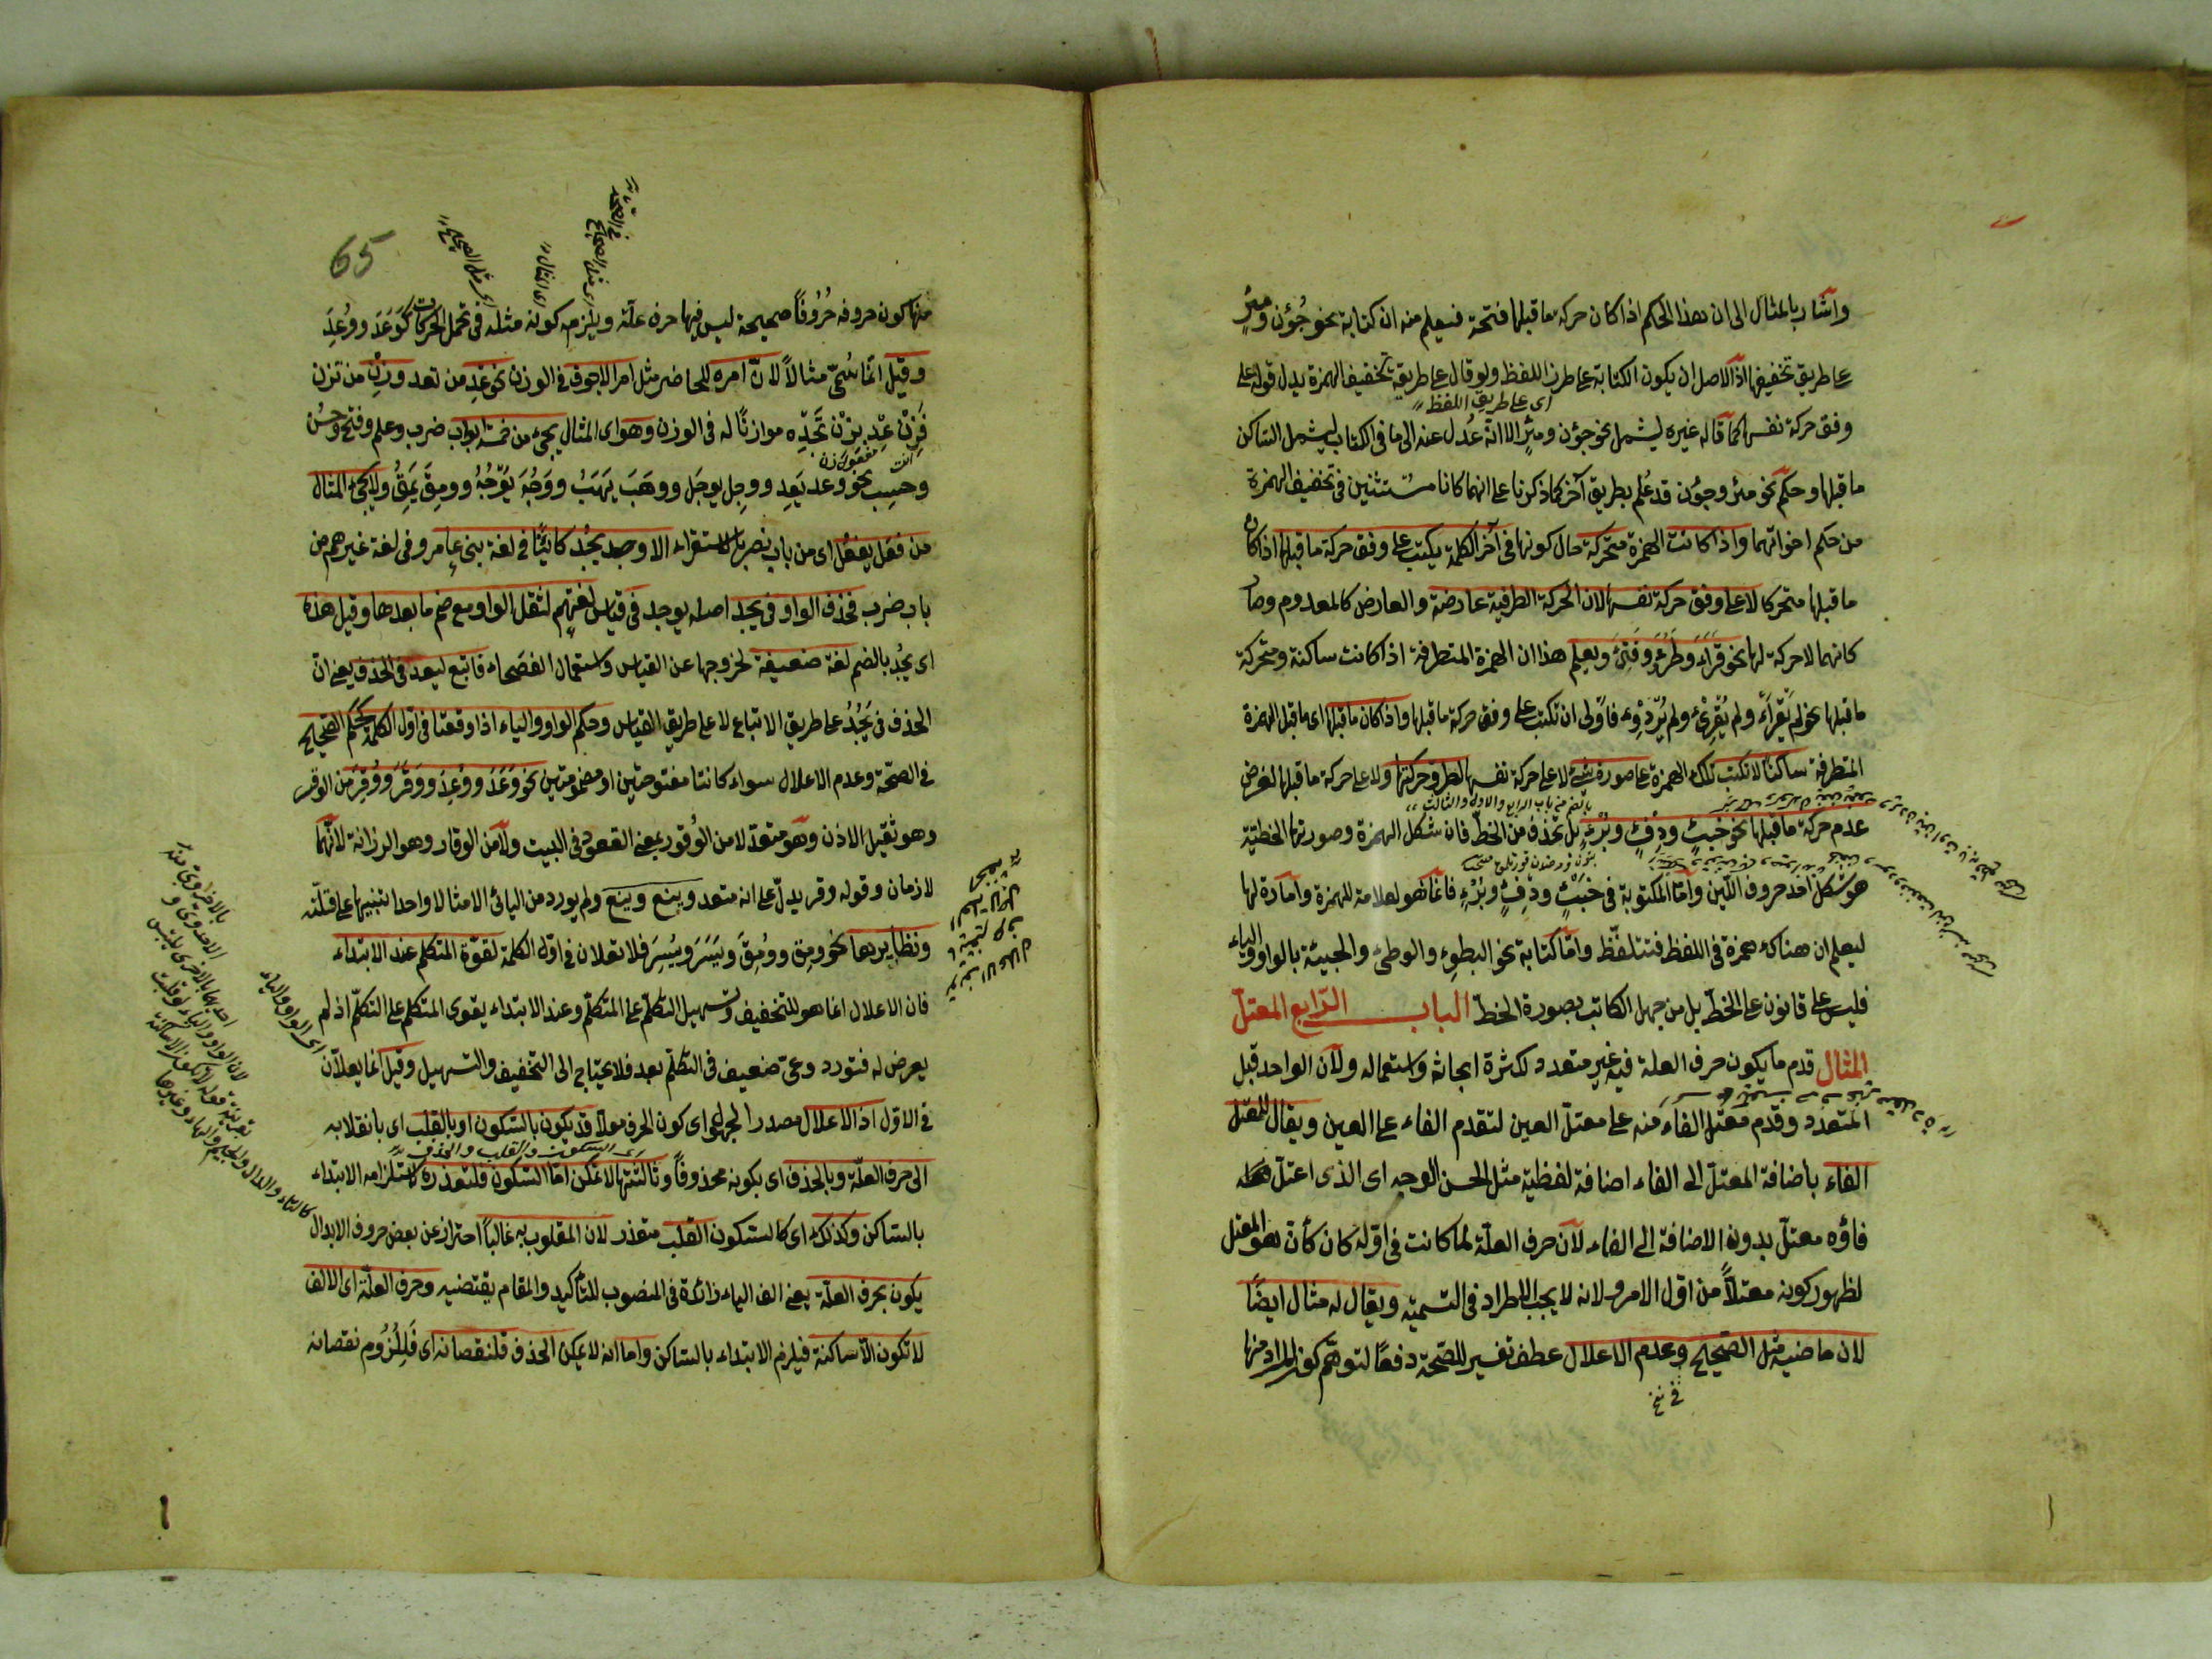 واشار بالمثال الى ان هذا الحكم اذا كان حركة ما قبلها فتحة فيعلم منه ان كتابة نحو جُؤن ومِئَرٍ
على طريق تخفيفها اذ الاصل ان يكون الكتابة على طرز اللفظ ولو قال على طريقة تخفيف الهمزة بدل قوله على
اى على طريق اللفظ
وفق حركة نفسها كما قاله غيره ليشمل نحو جؤن ومئر الا انه عُدل عنه الى ما فى الكتاب ليشمل الساكن
ما قبلها وحكم نحو مئر وجؤن قد عُلم بطريق آخر كما ذكرنا على انهما كانا مستثنين فى تخفيف الهمزة
من حكم اخواتهما واذا كانت الهمزة متحركة حال كونها فى آخر الكلمة يكتب على وفق حركة ما قبلها اذا كان
ما قبلها متحركا لا على وفق حركة نفسها لان الحركة الطرفية عارضة والعارض كالمعدوم وصار
كانهما لا حركة لها نحو قَرَأَ وطَرُؤَ وفَتِئَ ويعلم هذا ان الهمزة المتطرفة اذا كانت ساكنة ومتحركة
ما قبلها نحو لم يَقْرَأْ ولم يُقْرِئْ ولم يَرْدُؤْ فاَوْلى ان تكتب على وفق حركة ما قبلها واذا كان ما قبلها اى ما قبل الهمزة
المتطرفة ساكنا لا تكتب تلك الهمزة على صورة شئ لا على حركة نفسها لطرو حركتها ولا على حركة ما قبلها لفرض
عدم حركة ما قبلها نحو خَبْءٍ ودِفْءٍ وبُرْءٍ بل تحذف من الخط فان شكل الهمزة وصورتها الخطيّة
هو شكل احد حروف اللّين وامّا المكتوبة فى خَبْءٍ ودِفْءٍ وبُرْءٍ فانما هو لعلامة للهمزة وامارة لها
ليعلم ان هناك همزة فى اللفظ فتتلفّظ وامّا كتابة نحو البطوء والوطئ والجيئة بالواو والياء
فليس على قانون على الخطّ بل من جهل الكاتب بصورة الخطّ الباب الرّابع المعتل
المثال قدم ما يكون حرف العلة فيه غير متعدد لكثرة ابحاثه واستعماله ولان الواحد قبل
المتعدد وقدم معتل الفاء منه على معتلّ العين لتقدم الفاء على العين ويقال للمعتل
الفاء باضافة المعتلّ الى الفاء اضافة لفظية مثل الحسن الوجه اى الذى اعتلّ
فاؤه معتلّ بدون الاضافة الى الفاء لان حرف العلّة لما كانت فى اوّله كان كأن هو المعتل
لظهور كونه معتلاً من اوّل الامر ولانه لا يجب الاطراد فى التسمية ويقال له مثال ايضًا
لان ماضيه مثل الصّحيح وعدم الاعلال عطف تفسير للصّحة دفعًا لتوهّم كون المراد منها
65
منها كون حروفه حُرُوفًا صحيحة ليس فيها حرف علّة ويلزمه كونه مثله فى تحمل الحركات كَوَعَدَ ووُعِدَ
وقيل انّما سُمّى مثالاً لانّ امره للحاضر مثل امر الاجوف فى الوزن نحو عِد من تعد وزِن من تزن
فَزِنْ عِدْ بِزِنْ تَجِدْه موازنًا له فى الوزن وهو اى المثال يجئ من خمسة ابواب ضرب وعلم وفتح وحسُن
وحسِب نحو وعد يَعِد ووجِل يوجَل ووهَبَ يَهَبُ ووَجُهَ يَوْجُهُ وومِقَ يَمِقُ ولا يجئ المثال
من فَعَل يفعُل اى من باب نصر بالاستقراء الا وجد يجُد كائنًا فى لغة بنى عامر وفى لغة غيرهم من
باب ضرب فحذف الواو فى يجد اصله يوجد فى قياس لغتهم لثقل الواو مع ضم ما بعدها وقيل هذه
اى يجُد بالضم لغة ضعيفة لخروجها عن القياس واستعمال الفصحاء فاتبع ليعد فى الحذف يعنى انّ
الحذف فى يَجُدُ على طريق الاتباع لا على طريق القياس وحكم الواو والياء اذا وقعتا فى اوّل الكلمة كحكم الصّحيح
فى الصّحّة وعدم الاعلال سواء كانتا مفتوحتين او مضمومتين نحو وَعَدَ ووُعِدَ ووَقَرَ ووُقِرَ من الوقر
وهو ثقيل الاذن وهو متعدّ لا من الوُقور بمعنى القعود فى البيت ولا من الوقار وهو الرزانة لانّهما
لازمان وقوله وقر يدلّ على انه متعد وينع وينع ولم يورد من اليائى الا مثالا واحدا تنبيها على قلّته
ونظايرهما نحو ومِق وومُِقَ ويَسَرَ ويُسِرَ فلا تعلان فى اوّل الكلمة لقوّة المتكلم عند الابتداء
فان الاعلال انما هو للتخفيف وتسهيل التكلّم على المتكلّم وعند الابتداء يقوى المتكلم على التكلّم اذ لم
يعرض له فتور وعىّ ضعيف فى التكلّم بعد فلا يحتاج الى التخفيف والتسهيل وقيل انما يعلاّن
فى الاوّل اذ الاعلال مصدر المجهول اى كون الحرف معلا قد يكون بالسّكون او بالقلب اى بانقلابه
اى السكون والقلب والحذف
الى حرف العلّة وبالحذف اى بكونه محذوفًا وثالثتها لا تمكن امّا السّكون فلتعذره لاستلزامه الابتداء
بالساكن وكذلك اى كالسّكون القلب متعذر لان المقلوب به غالبًا احتراز عن بعض حروف الابدال
يكون بحرف العلّة يعنى الف الياء زائدة فى المنصوب للتأكيد والمقام يقتضيه وحرف العلّة اى الالف
لا تكون الّا ساكنة فيلزم الابتداء بالساكن واما انه لا يمكن الحذف فلنقصانه اى فَلِلُزُوم نقصانه